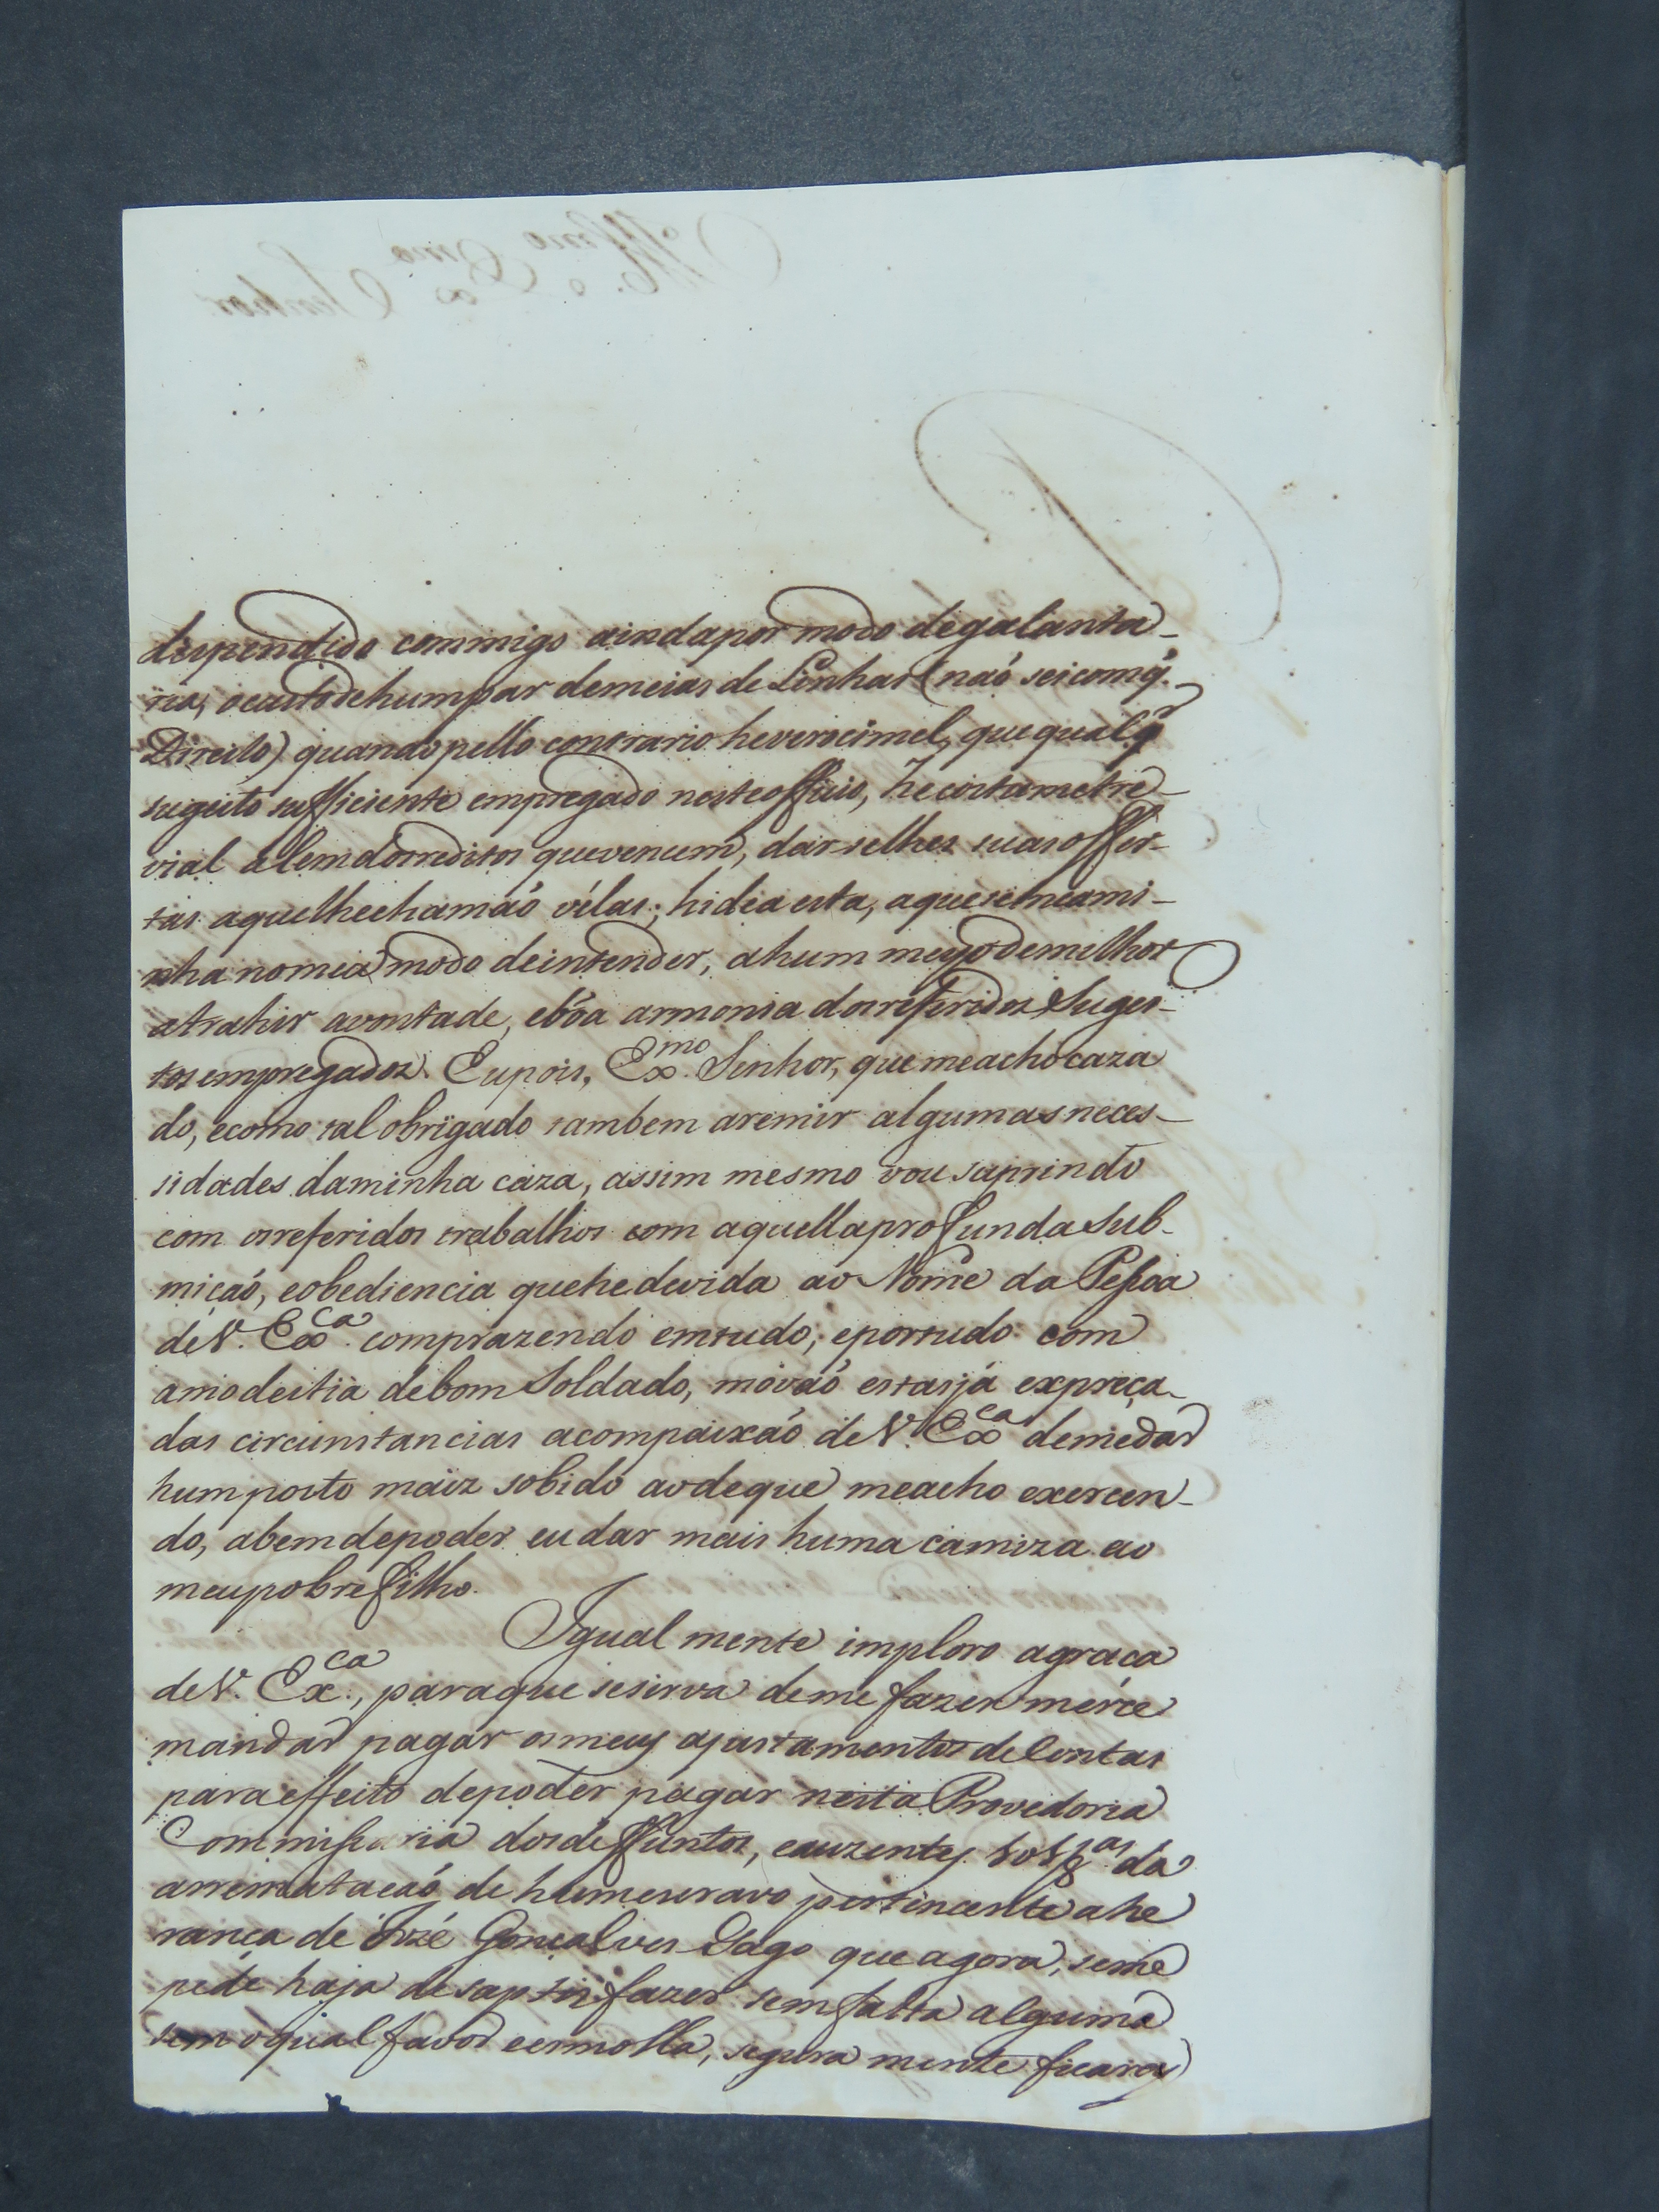 dispendido commigo aindapor modo degalanta-
ria, ocustodehumpar demeias de Linhas (naõ seicomq̃.
Direito) quandopello contrario heverocimel, quequalqr
sugeito sufficiente empregado nesteofficio, he costametre-
vial alemdosreditos quevencem, dar-selhes suasoffer-
tas aquelhechamaõ vélas; hidéa esta, aqueseincami-
nha nomeu modo deintender, ahum meyodemilhor
atrahir avontade, ebôa armonia dosreferidos Sugei-
tos empregados. Eupois, Exmo. Senhor, que meachocaza
do, ecomo tal obrigado tambem aremir algumasneces-
sidades daminha caza, assim mesmo vou suprindo
com osreferidos trabalhos com aquellaprofundasub-
miçaõ, eobediencia quehedevida ao Nome da Pessoa
deV. Exca. comprazendo emtudo, eportudo com
amodestia debom Soldado, móvaõ estasjá expreça-
das circunstancias acompaixaõ deV. Exca demedar
humposto maiz sobido aodeque meacho exercen-
do, abemdepoder eu dar mais huma camiza ao
meupobrefilho.
Igual mente imploro agraca
deV. Exca., paraque sesirva deme fazer merce
mandar pagar osmeus ajustamentos deContas
paraeffeito depoder pagar nesta Provedoria
Commissaria dosdeffuntos, eauzentes da
arrematacaõ de humescravo pertincente ahe
ranca de Jozé Goncalves Lago que agora, seme
pede haja desaptisfazer sem falta alguma
sem oqual favor eesmolla, segura mente ficarey